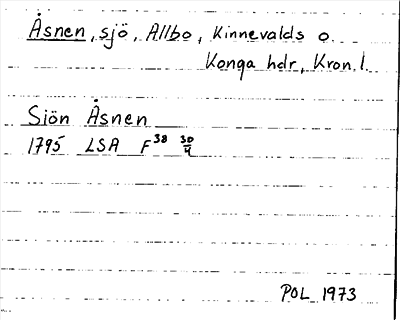 Åsnen, sjö, Allbo, Kinnevalds o.
Konga hdr, Kron. l.
Siön Åsnen
1795 LSA F38 30/4
POL 1973